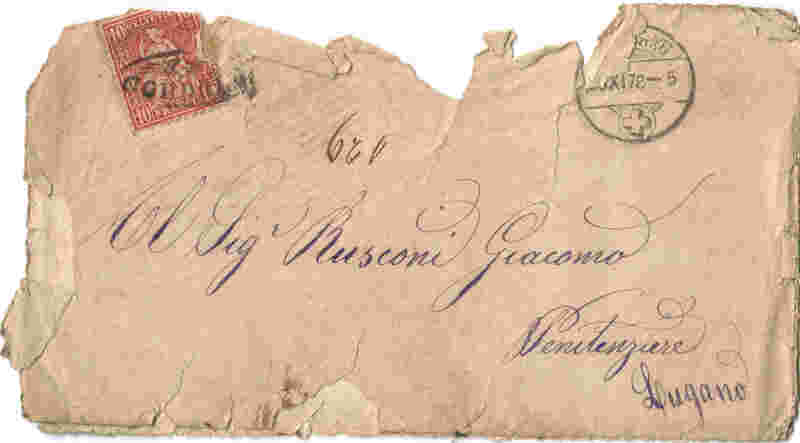 10
10
XI 78 – 5
620
Al Sigr Rusconi Giacomo
Penitenziere
Lugano